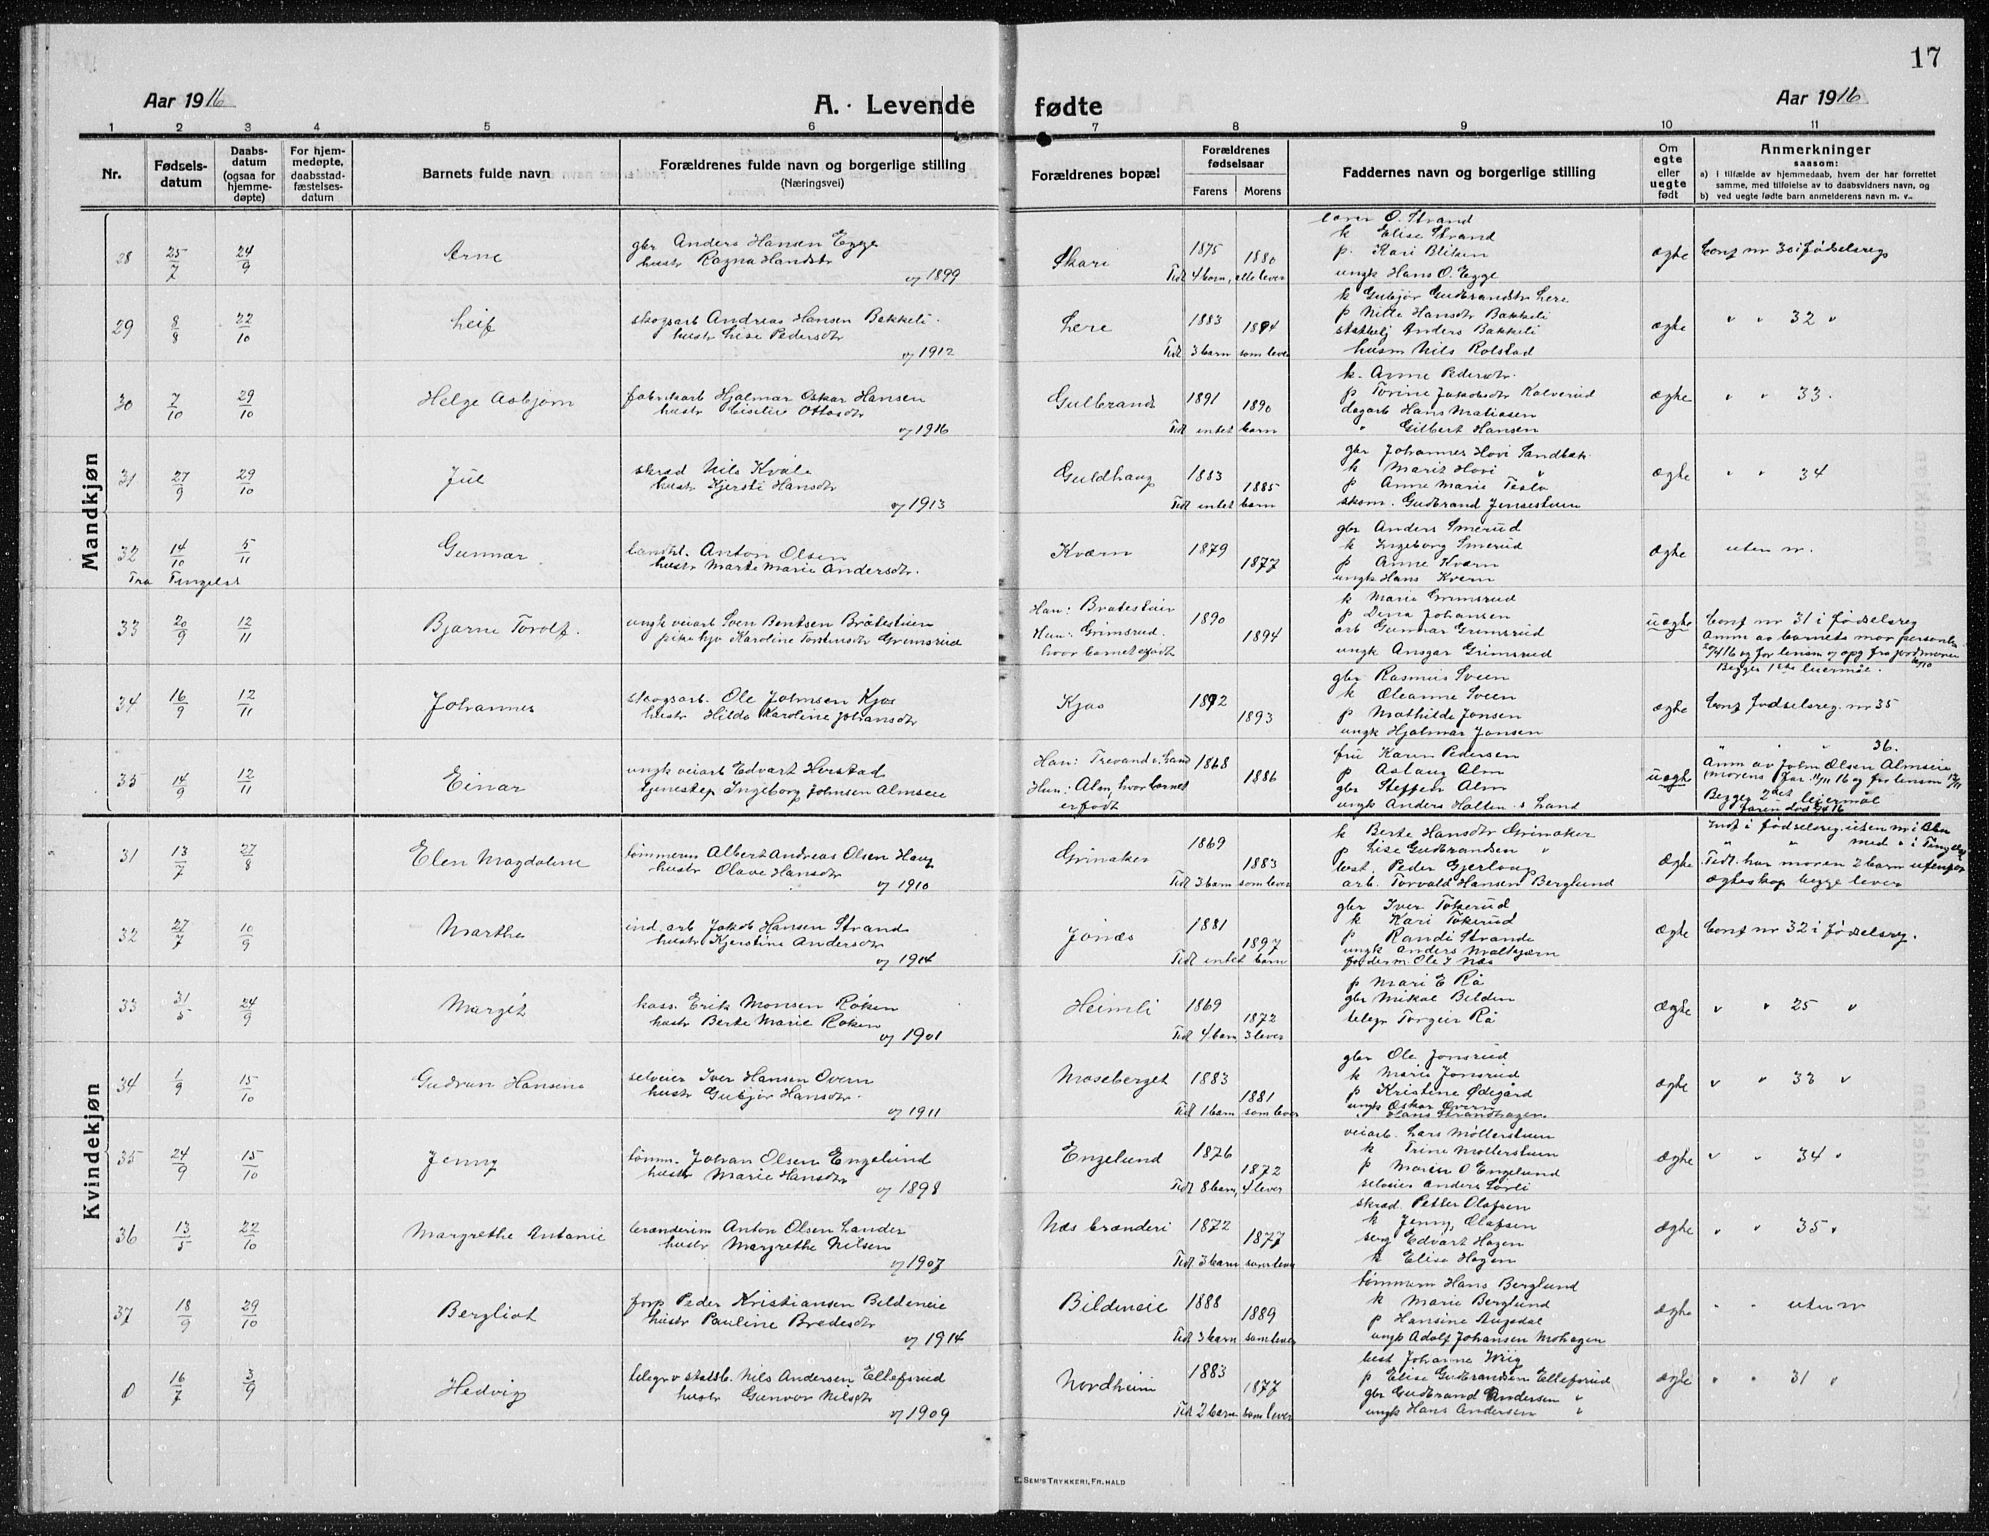 17
Aar 1916
A. Levende fødte
Aar 1916
1 2 3 4 5 6 7 8 9 10 11
Nr.
Fødsels-
datum
Daabs-
datum
(ogsaa for
hjemme-
døpte)
For hjem-
medøpte,
daabsstad-
fæstelses-
datum
Barnets fulde navn
Forældrenes fulde navn og borgerlige stilling
(Næringsvei)
Forældrenes bopæl
Forældrenes
fødselsaar
Farens Morens
Faddernes navn og borgerlige stilling
Om
egte
eller
uegte
født
Anmerkninger
saasom:
a) i tilfælde av hjemmedaab, hvem der har forrettet
samme, med tilføielse av to daabsvidners navn, og
b) ved uegte fødte barn anmelderens navn m. v..
Mandkjøn
28 25/7 24/9 Arne
gbr Anders Hansen Egge
hustr Ragna Hansdtr
og 1899
Skari 1875 1880
Tidl 4 barn, alle lever
lærer O. Strand
k Elise Strand
p. Kari Blilien
ungk Hans O. Egge
ægte
Conf nr 30 i fødselsreg
29 8/8 22/10 Leif
skogsarb Andreas Hansen Bakkeli
hustr Lise Pedersdtr
og 1912
Lere 1883 1894
Tidl 3 barn som lever
k Gubjør Gudbrandsdtr Lere
p Nille Hansdtr Bakkeli
Anders Bakkeli
husm Nils Rolstad
ægte
" " 32 "
30 7/10 29/10 Helge Asbjørn
fabrikarb Hjalmar Oskar Hansen
hustr Ottosdtr
og 1916
Gulbrands 1891 1890
Tidl intet barn
k. Anne Pedersdtr.
p Torine Jakobsdtr Kalverud
dagarb Hans Matiasen
" Gilbert Hansen
ægte
" " 33.
31 27/9 29/10 Jul
skræd Nils Kvale
hustr Kjersti Hansdtr
og 1913
Guldhaug 1883 1885
Tidl intet barn
gbr Johannes Hovi Sandbak
k Marit Hovi "
p Anne Marie Teslo
skom. Gudbrand Jensestuen
ægte
" " 34
32 14/10 5/11 Gunnar
Fra Tingelst
landh. Anton Olsen
hustr Marte Marie Andersdtr.
Kværn 1879 1877
gbr Anders Smerud
k Ingeborg Smerud
p Anne Kværn
ungk Hans Kværn
ægte
uten nr.
33 20/9 12/11 Bjarne Torolf.
ungk veiarb Sven Bentsen Bråtestuen
pike hjv Karoline Torstensdtr Grimsrud
Han: Bratestuen
Hun: Grimsrud.
hvor barnet er født
1890 1894
k Marie Grimsrud
p Dina Johansen
arb Gunnar Grimsrud
ungk Ansgar Grimsrud
uægte
Conf nr 31 i fødselsreg
Anm av barnets mor personlig
Begges 1ste leiermål.
34 16/9 12/11 Johannes
skogsarb. Ole Johnsen Kjos
hustr Hilda Karoline Johansdtr
Kjos 1892 1893
gbr Rasmus Sveen
k Oleanne Sveen
p Mathilde Jonsen
ungk Hjalmar Jonsen
ægte
Conf fødselsreg. nr 35
35 14/9 12/11 Einar
ungk veiarb Edvart Herstad
tjenestep Ingeborg Johnsen Almseie
Han: Trevand s. Land
Hun: Alm, hvor barnet
er født
1868 1886
fru Karen Pedersen
p Aslaug Alm
gbr Steffen Alm
ungk Anders Holten s Land
uægte
36.
Anm av John Olsen Almseie
(morens far 11/11 16 og for lensm 12/11
Begges 2det leiermål
Kvindekjøn
31 13/7 27/8 Elen Magdalene
tømmerm Albert Andreas Olsen Haug
hustr Olave Hansdtr
og 1910
Grinaker 1869 1883
Tidl 3 barn som lever
k Berte Hansdtr Grinaker
p Lise Gudbrandsen "
best. Peder Gjerloug
arb. Torvald Hansen Berglund
ægte
Indf i fødselsreg. uten nr i
" " med " i
Tidl. har moren 2 barn utenfor
ægteskap begge lever
32 27/7 10/9 Marthe
ind. arb Jakob Hansen Strand
hustr Kjerstine Andersdtr
og 1914
Jonæs 1881 1897
Tidl intet barn
gbr Iver Tokerud
k Kari Tokerud
p Randi Strande
ungk Anders
foderm. Ole J Næs
ægte
Conf nr 32 i fødselsreg.
33 31/5 24/9 Margit
kass. Erik Monsen Røken
hustr Berte Marie Røken
og 1901
Heimli 1869 1872
Tidl 4 barn, 3 lever
p Mari E Rå
gbr Mikal Bilden
telegr Torgeir Rå
ægte
" " 25 "
34 1/9 15/10 Gudrun Hansine
selveier Iver Hansen Overn
hustr Gubjør Hansdtr.
og 1911
Moseberget 1883 1881
Tidl 1 barn som lever
gbr Ole Jonsrud
k Marie Jonsrud
p Kristine Ødegård
ungk Oskar Overn
" Hans Strandhagen
ægte
" " 33 "
35 24/9 15/10 Jenny
tømm. Johan Olsen Engelund
hustr Marie Hansdtr
og 1898
Engelund 1876 1872
Tidl 8 barn, 4 lever
veiarb. Lars Møllerstuen
k Trine Møllerstuen
p Maren O Engelund
selveier Anders Sørli
ægte
" " 34 "
36 13/5 22/10 Margrethe Antonie
brænderim Anton Olsen Lander
hustr Margrethe Nilsen
og 1907
Næs brænderi 1872 1877
Tidl 3 barn som lever
skræd. Petter Olafsen
k Jenny Olafsen
serg Edvart Hagen
k Elise Hagen
ægte
" " 35 "
37 18/9 29/10 Bergliot
forp Peder Kristiansen Bildeneie
hustr Pauline Bredesdtr
og 1914
Bildeneie 1888 1889
Tidl 3 barn som lever
tømmerm Hans Berglund
k Marie Berglund
p Hansine Augedal
ungk Adolf Johansen Mohagen
ægte
" " uten nr
0 16/7 3/9 Hedvig
telegr v statsb. Nils Andersen Ellefsrud
hustr Gunvor Nilsdtr
og 1909
Nordheim 1883 1877
Tidl 2 barn som lever
best Johanne Wiig
p Elise Gudbrandsen Ellefsrud
gbr Gudbrand Andersen "
ungk Hans Andersen "
ægte
" " 31 "
E. SEM'S TRYKKERI, FR.HALD